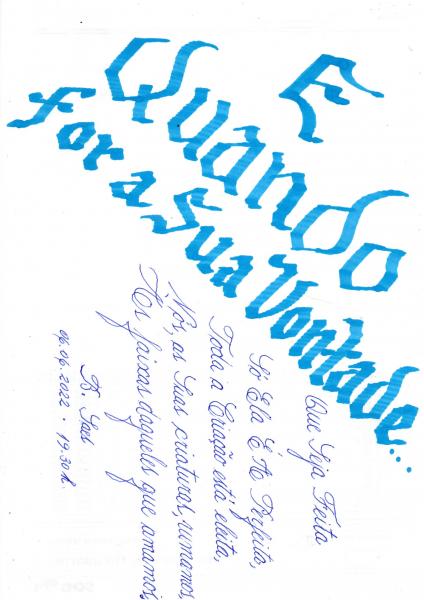 E
Quando
for a Sua Vontade...
Que Seja Feita
Só Ela É A Perfeita,
Toda a Criação está eleita,
Nós, as Suas criaturas, rumamos,
Às faixas daqueles que amamos,
06.06.2022. 19.30h.